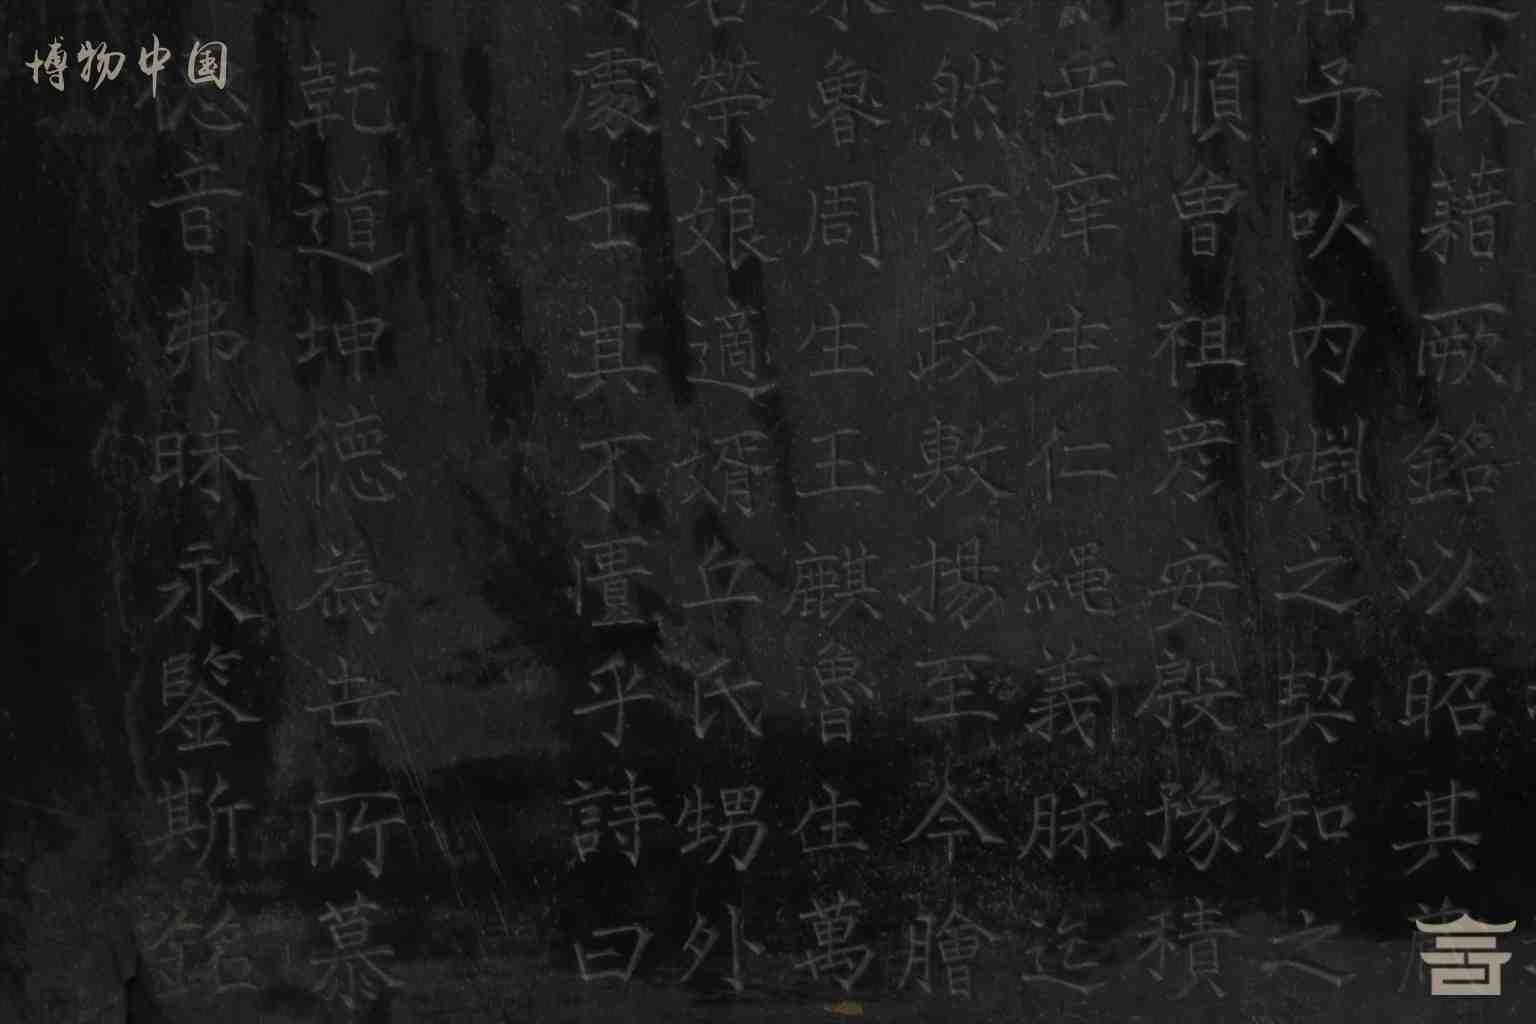 博物中国
敢藉厥銘以昭其
予以内姻之契知之
順曾祖彦安殷豫積
岳庠生仁繩義脉迄
然家政敷揚至今膾
魯周生玉麒魯生萬
榮娘適婿丘氏甥外
處士其不價乎詩曰
乾道坤德為世所慕
音弗昧永鑒斯銘